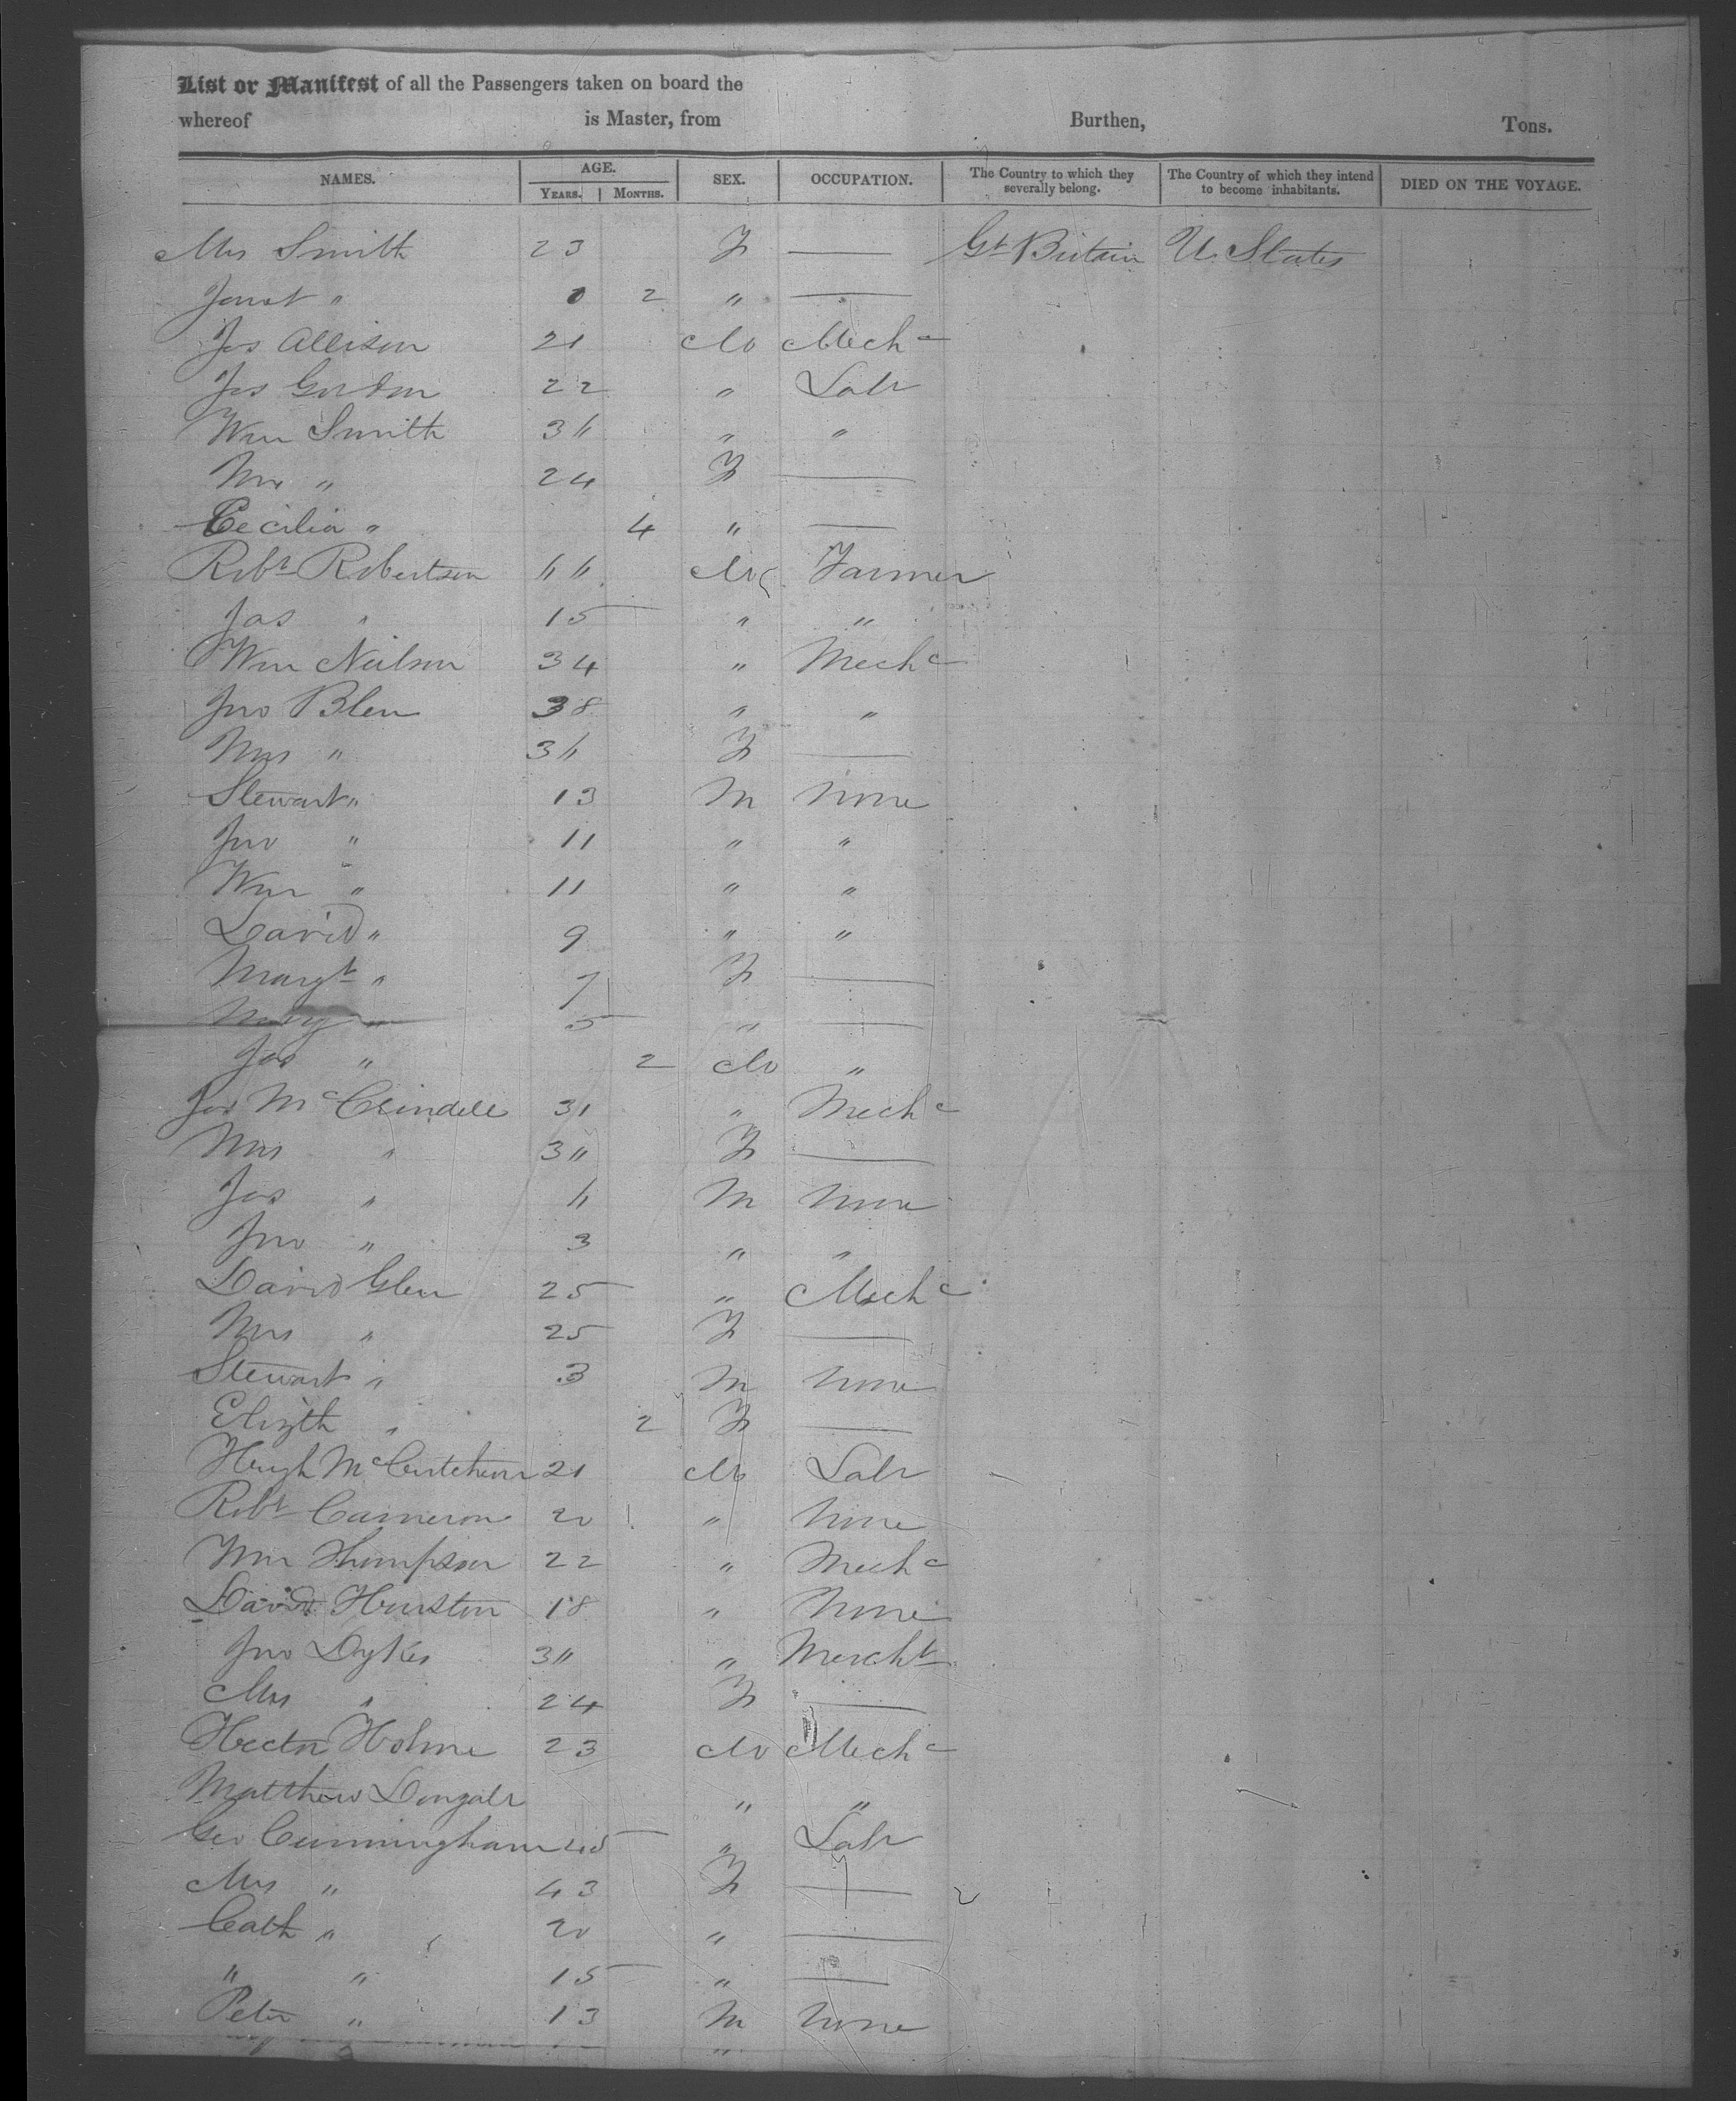 List or Manifest of all the Passengers taken on board the
whereof is Master, from Burthen, Tons.
NAMES. AGE. SEX. OCCUPATION. The Country to which they severally belong. The Country of which they intend to become inhabitants. DIED ON THE VOYAGE.
YEARS. MONTHS.
Mrs Smith 23 F — Gt Britain U. States
Janet " 0 2 " —
Jas Allison 21 M Mechc
Jas Gordon 22 " Labr
Wm Smith 36 " "
Mrs " 24 F —
Cecilia " 4 " —
Robt Robertson 66 M Farmer
Jas " 15 " "
Wm Neilson 34 " Mechc
Jno Blen 38 " "
Mrs " 36 F —
Stewart " 13 M None
Jno " 11 " "
Wm " 11 " "
David " 9 " "
Margt " 7 F —
Mary " 5 " —
Jas " 2 M "
Jas McCrindell 31 " Mechc
Mrs " 30 F —
Jas " 6 M None
Jno " 3 " "
David Glen 25 " Mechc
Mrs " 25 F —
Stewart " 3 M None
Elizth " 2 F —
Hugh McCutcheon 21 M Labr
Robt Cameron 20 " None
Wm Thompson 22 " Mechc
David Houston 18 " None
Jno Dykes 30 " Mercht
Mrs " 24 F —
Hector Holme 23 M Mechc
Matthew " "
Geo Cunningham 45 " Labr
Mrs " 43 F —
Cath " 20 " —
" " 15 " —
Peter " 13 M None